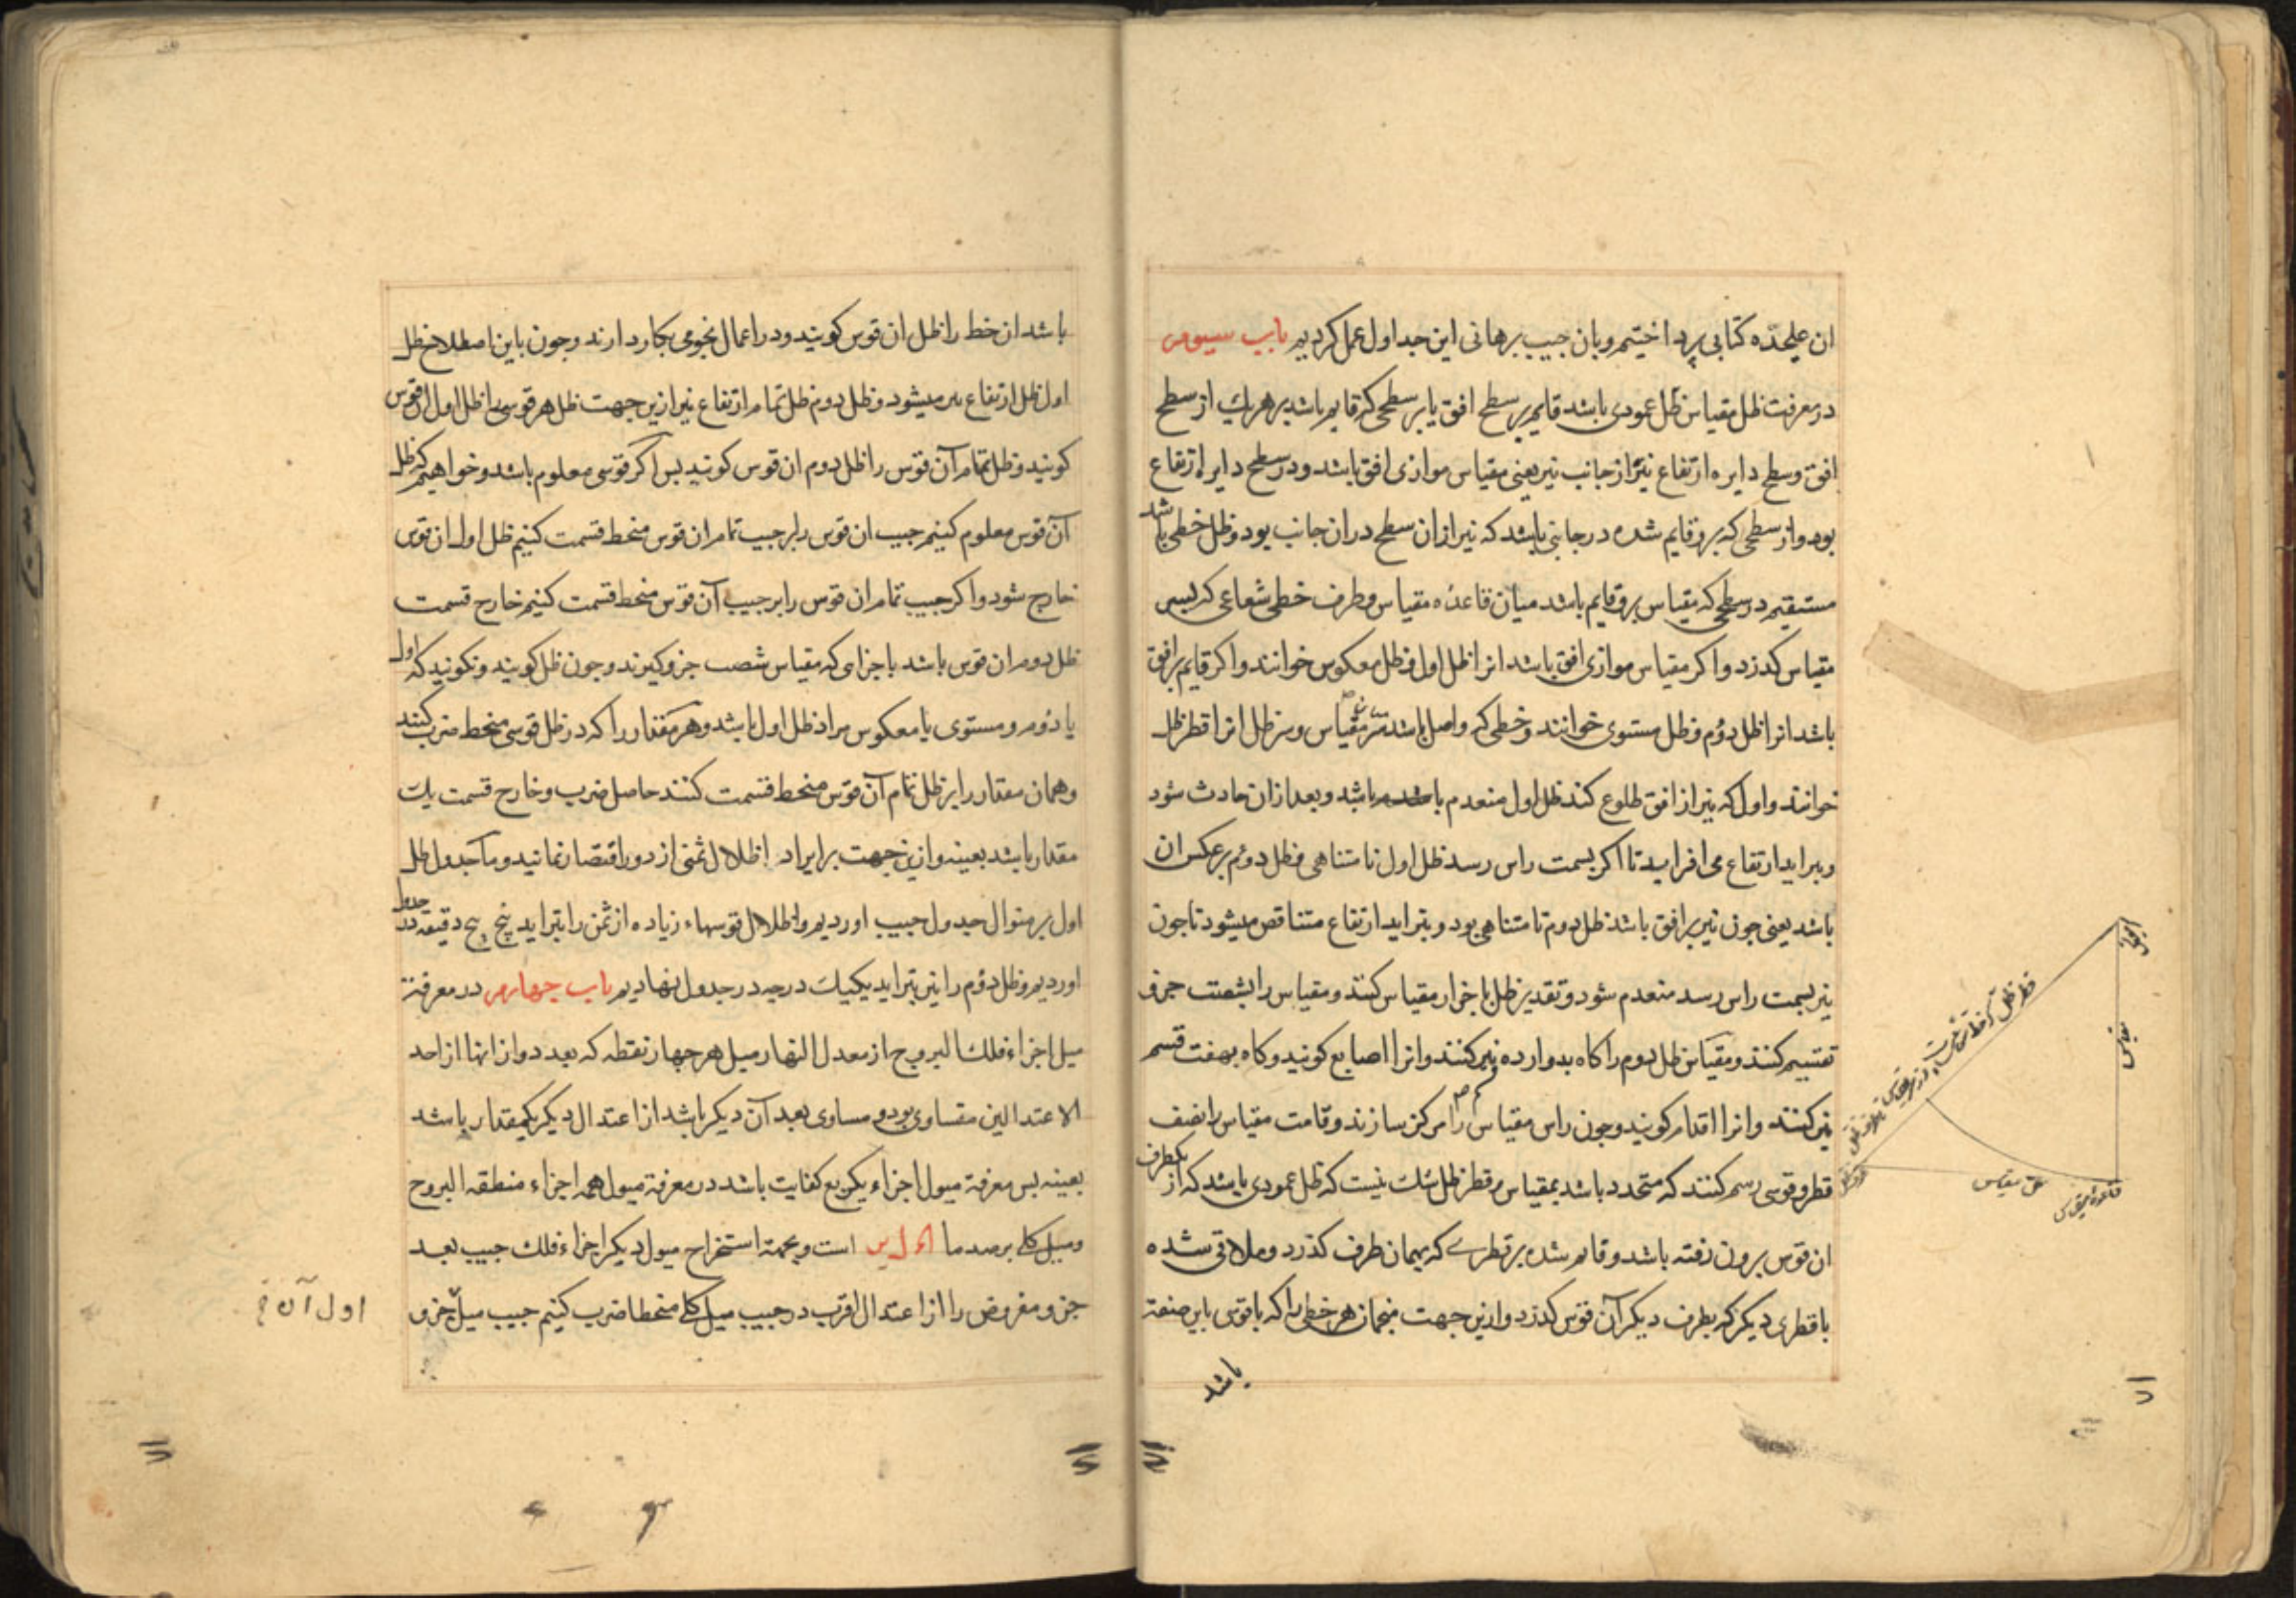 ان علیحدّه کتابی پرداختیم و بان جیب برهانی این جداول عمل کردیم باب سیوم
در معرفت ظل مقیاس ظل عمودی باشد قایم بر سطح افق یا بر سطحی که قایم باشد بر هریك از سطح
افق و سطح دایره ارتفاع نیر از جانب نیر یعنی مقیاس موازی افق باشد و در سطح دایره ارتفاع
بود و از سطحی که برو قایم شده در جانبی باشد که نیر ازان سطح دران جانب بود و ظل خطی باشد
مستقیم در سطحی که مقیاس برو قایم باشد میان قاعده مقیاس و طرف خطی شعاعی که بسر
مقیاس کذرد و اکر مقیاس موازی افق باشد انرا ظل اول و ظل معکوس خوانند و اکر قایم بر افق
باشد انرا ظل دوم و ظل مستوی خوانند و خطی که واصل باشد میان سر مقیاس و سر ظل انرا قطر ظل
خوانند و اول که نیر از افق طلوع کند ظل اول منعدم باشد و بعد ازان حادث شود
و بتراید ارتفاع می افزاید تا اکر بسمت راس رسد ظل اول نامتناهی و ظل دوم برعکس ان
باشد یعنی جون نیر بر افق باشد ظل دوم نامتناهی بود و بتراید ارتفاع متناقص میشود تا جون
نیر بسمت راس رسد منعدم شود و تقدیر ظل باجزاء مقیاس کنند و مقیاس را بشصت جزو
تقسیم کنند و مقیاس ظل دوم را کاه بدوازده نیز کنند و انرا اصابع کویند و کاه بهفت قسم
نیز کنند و انرا اقدام کویند و جون راس مقیاس را مرکز سازند و قامت مقیاس را نصف
قطر و قوسی رسم کنند که متحدد باشد بمقیاس و قطر ظل شك نیست که ظل عمودی باشد که از یکطرف
ان قوس برون رفته باشد و قایم شده بر قطری که بهمان طرف کذرد و ملاقی شده
با قطری دیکر که بطرف دیکر آن قوس کذرد و ازین جهت منجمان هر خطی را که با قوسی باین صفت
باشد
مقیاس
ظل مقیاس
قاعده مقیاس
۷۱
باشد ان خط را ظل ان قوس کویند و در اعمال نجومی بکار دارند و جون باین اصطلاح ظل
اول ظل ارتفاع نیر میشود و ظل دوم ظل تمام ارتفاع نیر ازین جهت ظل هر قوسی را ظل اول ان قوس
کویند و ظل تمام آن قوس را ظل دوم ان قوس کویند بس اکر قوسی معلوم باشد و خواهیم که ظل
آن قوس معلوم کنیم جیب ان قوس را بر جیب تمام ان قوس منحط قسمت کنیم ظل اول ان قوس
خارج شود و اکر جیب تمام ان قوس را بر جیب آن قوس منحط قسمت کنیم خارج قسمت
ظل دوم ان قوس باشد باجزای که مقیاس شصت جزو کیرند و جون ظل کویند و نکویند که اول
یا دوم و مستوی یا معکوس مراد ظل اول باشد و هر مقدار را که در ظل قوسی منحط ضرب کنند
و همان مقدار را بر ظل تمام آن قوس منحط قسمت کنند حاصل ضرب و خارج قسمت یك
مقدار باشد بعینه و ازین جهت بر ایراد اظلال ثمنی از دور اقتصار نمانید و ما جدول ظل
اول بر منوال جدول جیب اوردیم و اظلال قوسهاء زیاده از ثمن را بتراید پنج پنج دقیقه در جدول
اوردیم و ظل دوم را نیز بتراید یکیك درجه در جدول نهادیم باب چهارم در معرفة
میل اجزاء فلك البروج از معدل النهار میل هر چهار نقطه که بعد دو ازانها از احد
الاعتدالین متساوی بود و مساوی بعد آن دیکر باشد از اعتدال دیکر یکمقدار باشد
بعینه بس معرفة میول اجزاء یکربع کفایت باشد در معرفة میول همه اجزاء منطقه البروج
و میل کلی برصد ما است و بجهة استخراج میول دیکر اجزاء فلك جیب بعد
جزو مفروض را از اعتدال اقرب در جیب میل کلی منحطا ضرب کنیم جیب میل جزو
اول آن